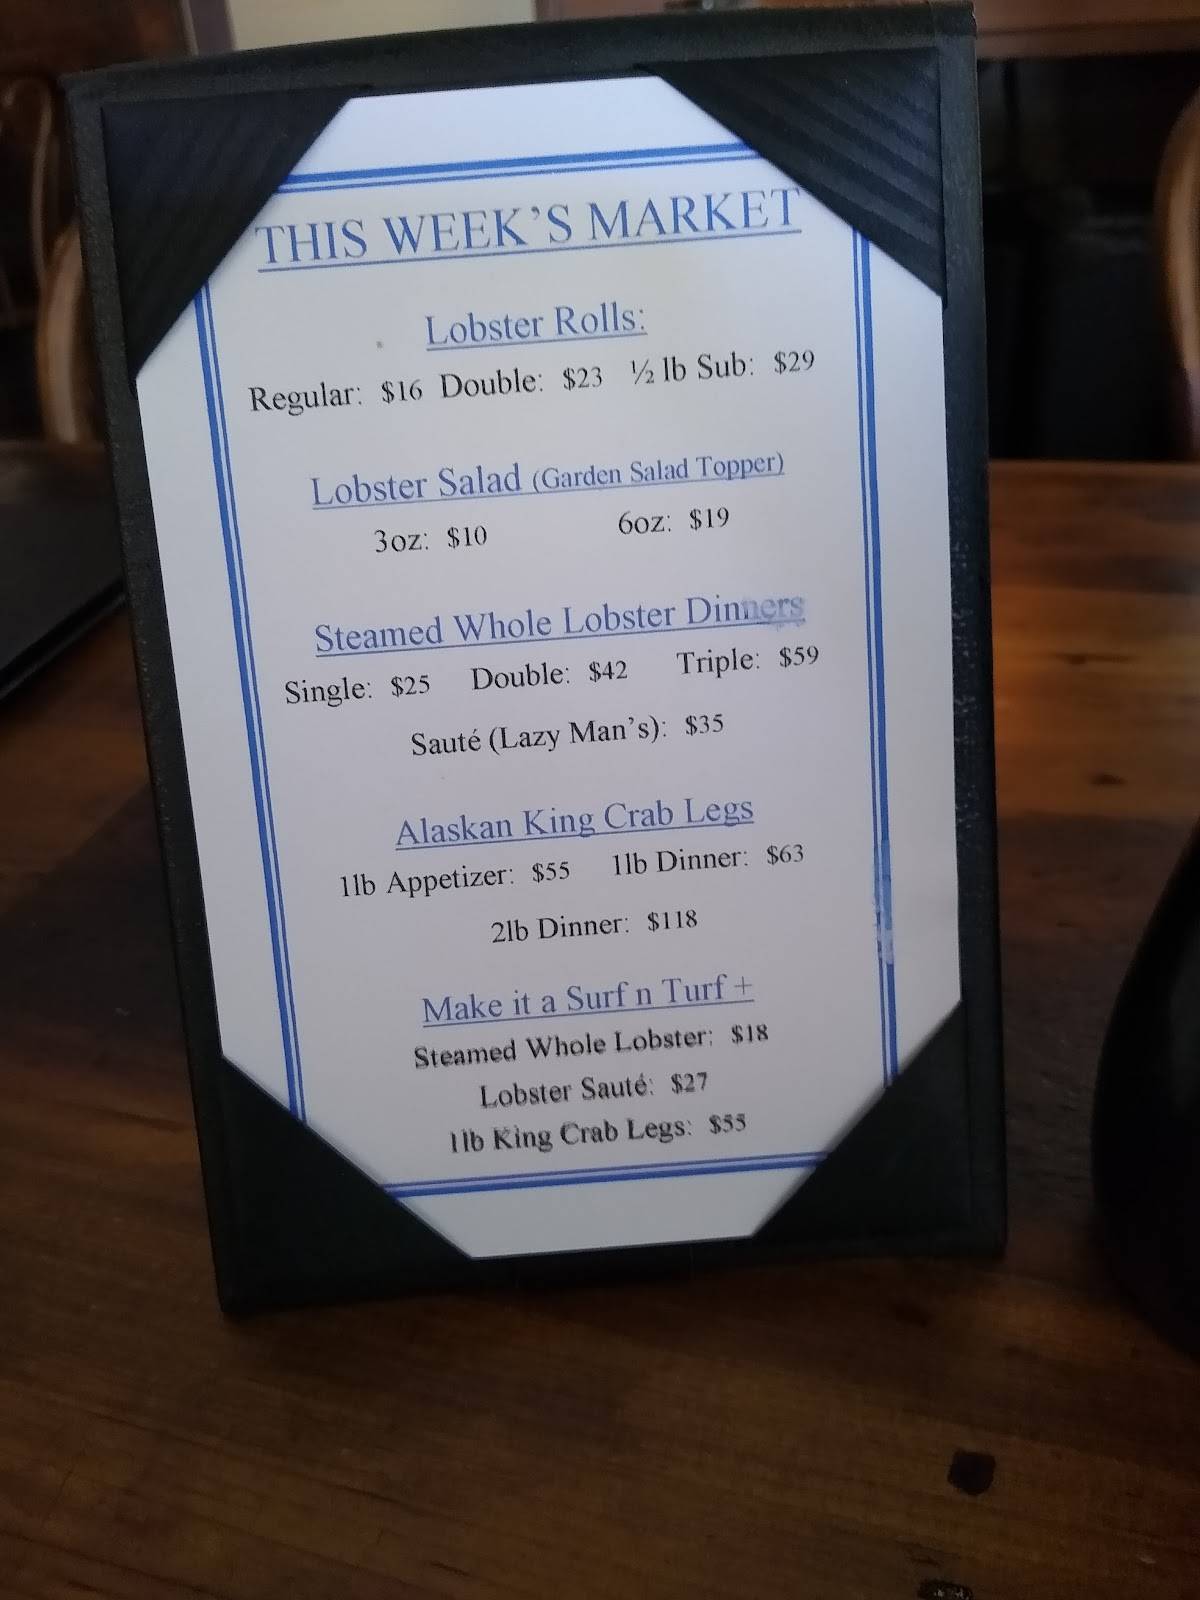 THIS WEEK'S MARKET
Lobster Rolls:
Regular: $16 Double: $23 ½ lb Sub: $29
Lobster Salad (Garden Salad Topper)
3oz: $10 6oz: $19
Steamed Whole Lobster Dinners
Single: $25 Double: $42 Triple: $59
Sauté (Lazy Man's): $35
Alaskan King Crab Legs
1lb Appetizer: $55 1lb Dinner: $63
2lb Dinner: $118
Make it a Surf n Turf +
Steamed Whole Lobster: $18
Lobster Sauté: $27
1lb King Crab Legs: $55